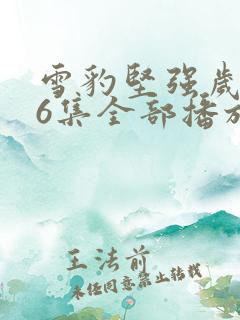 雪豹坚强岁
6集全部播放
王法前
未经同意禁止转载